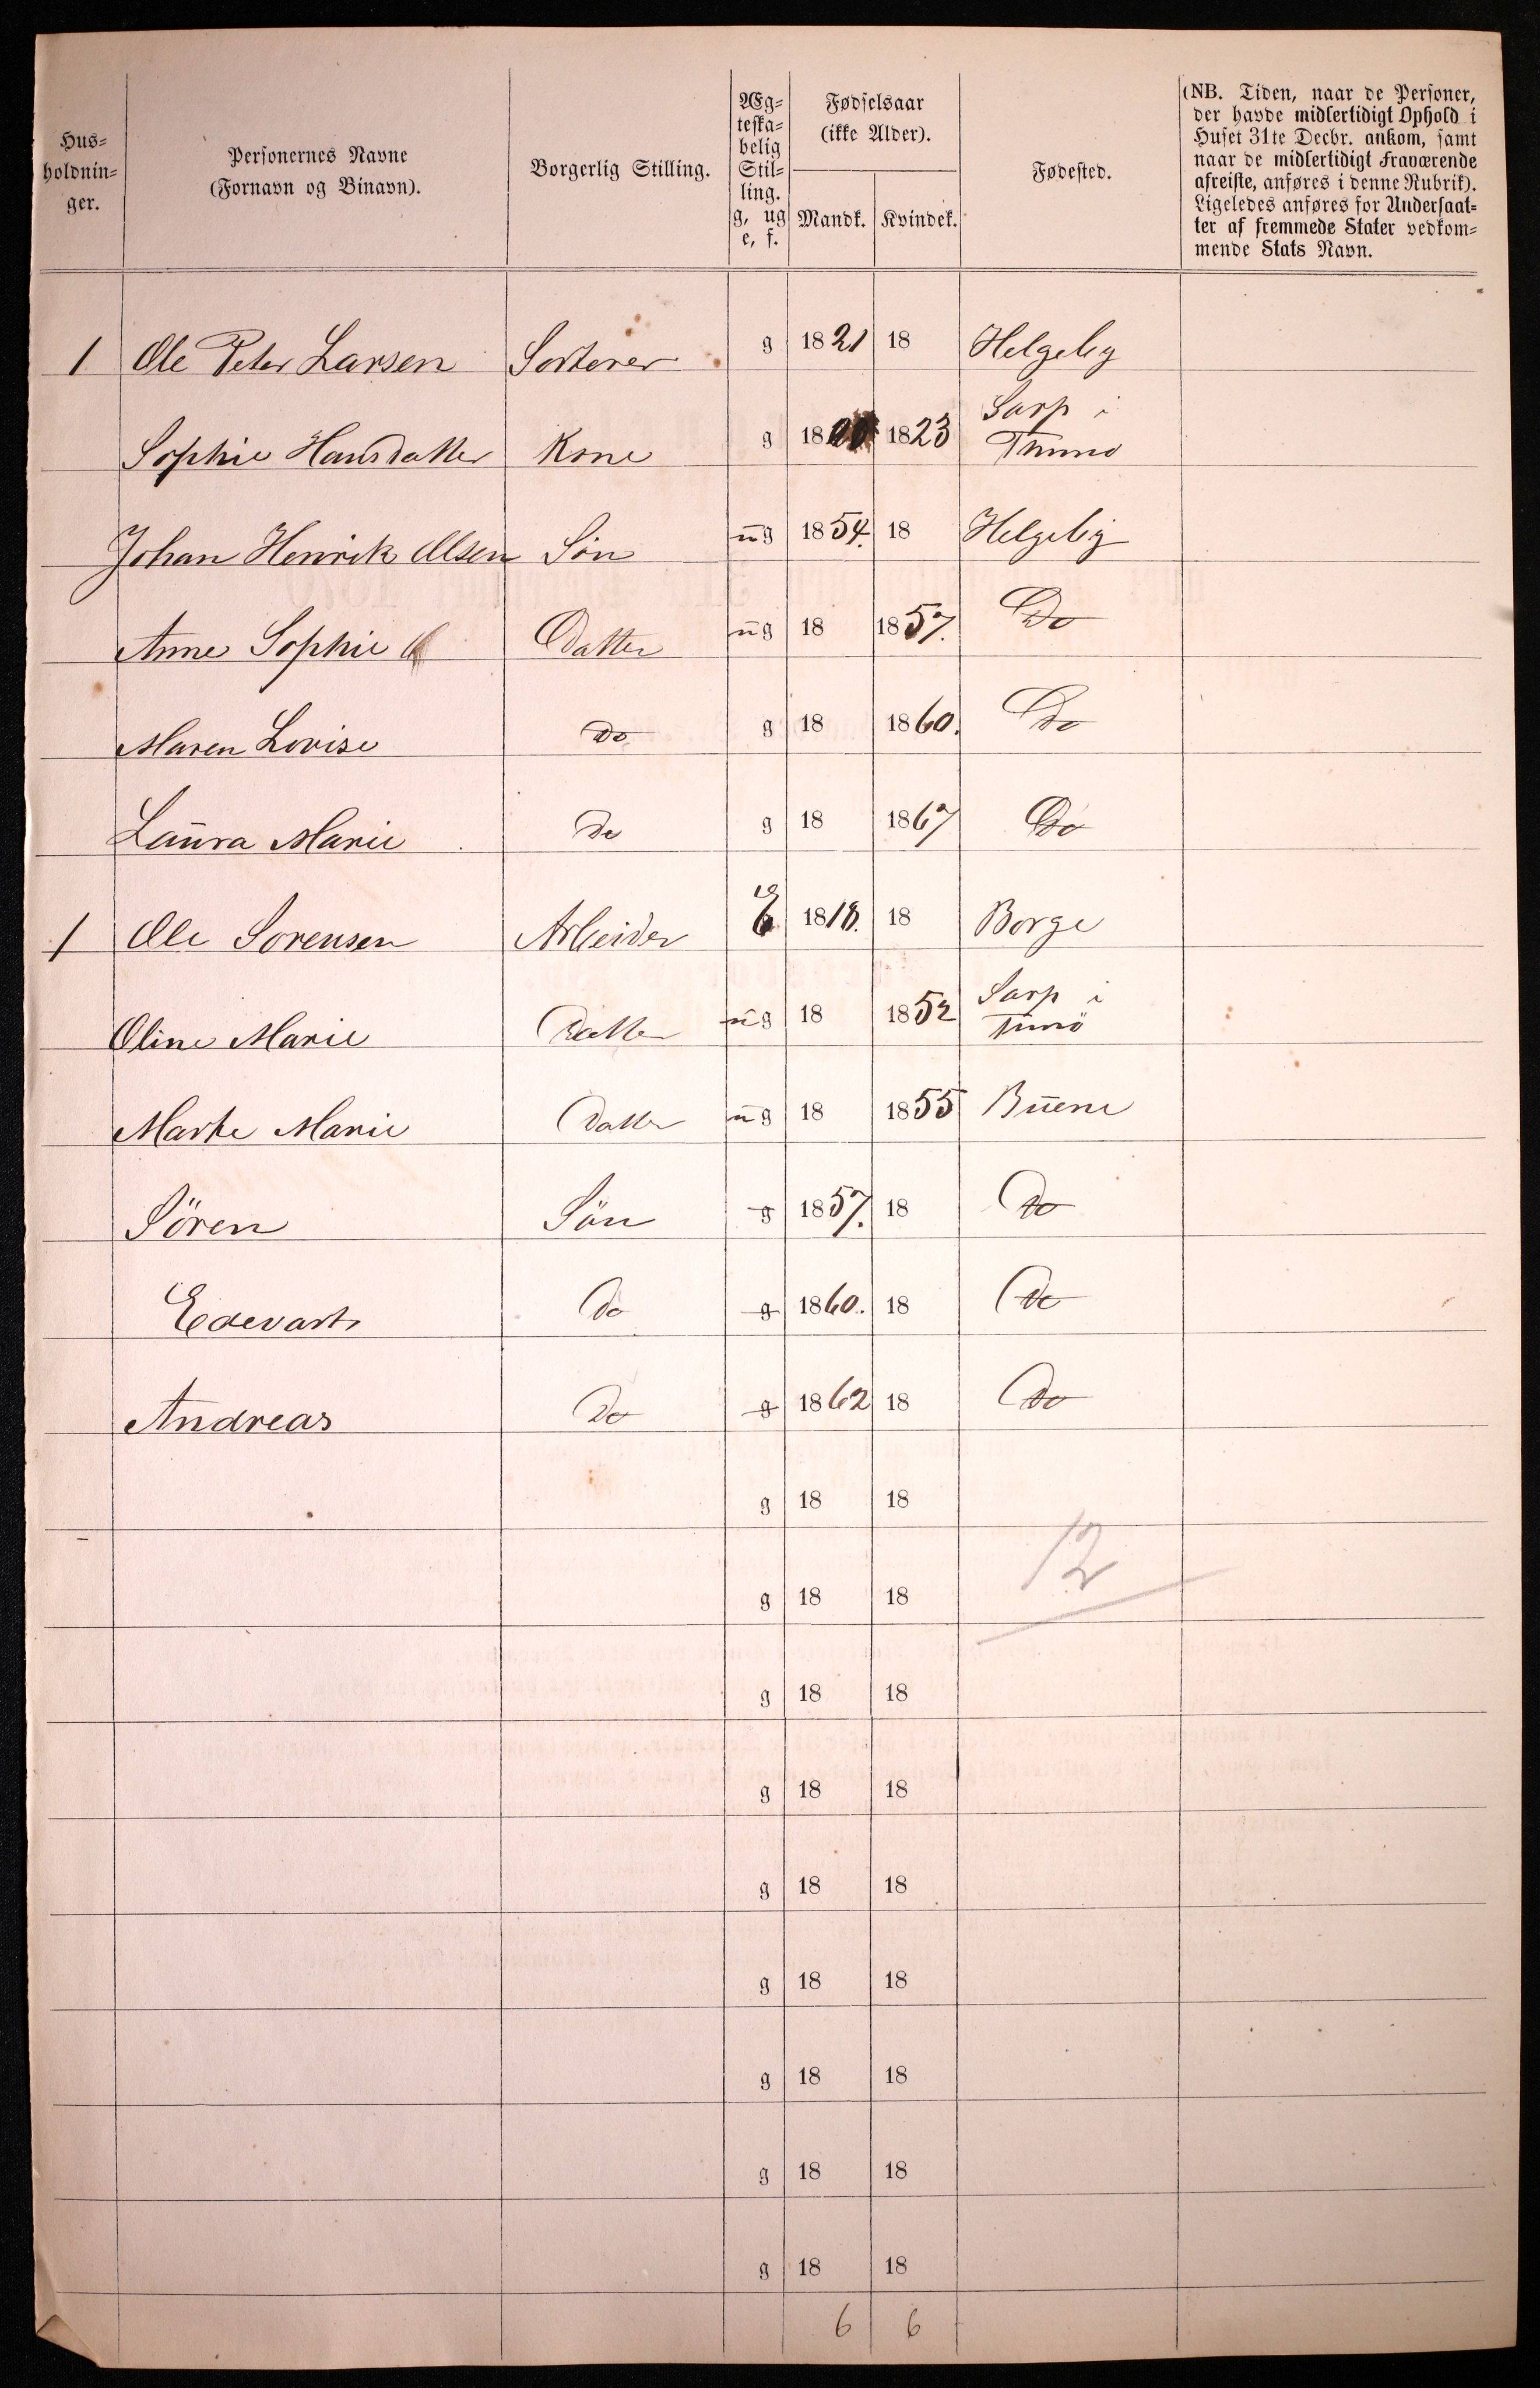 Hus-
holdnin-
ger.
Personernes Navne
(Fornavn og Binavn).
Borgerlig Stilling.
Æg-
teska-
belig
Stil-
ling.
g, ug
e, f.
Fødselsaar
(ikke Alder).
Mandk. Kvindek.
Fødested.
(NB. Tiden, naar de Personer,
der havde midlertidigt Ophold i
Huset 31te Decbr. ankom, samt
naar de midlertidigt Fraværende
afreiste, anføres i denne Rubrik).
Ligeledes anføres for Undersaat-
ter af fremmede Stater vedkom-
mende Stats Navn.
1 Ole Peter Larsen Sorterer g 1821 18 Helgeby
Sophie Hansdatter Kone g 18 1823 Sarp i Thunø
Johan Henrik Olsen Søn ug 1854. 18 Helgeby
Anne Sophie Datter ug 18 1857. Do
Maren Lovise Do g 18 1860. Do
Laura Marie Do g 18 1867 Do
1 Ole Sorensen Arbeider E 1818. 18 Borge
Oline Marie Datter ug 18 1852 Sarp i Tunø
Marte Marie Datter ug 18 1855 Buene
Sören Sön g 1857. 18 Do
Edevart Do g 1860. 18 Do
Andreas Do g 1862 18 Do
g 18 18
g 18 18 12
g 18 18
g 18 18
g 18 18
g 18 18
g 18 18
g 18 18
g 18 18
6 6